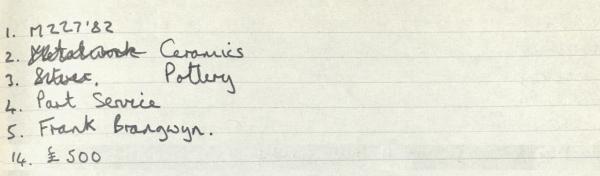 1. M227'82
2. Metalwork Ceramics
3. Silver. Pottery
4. Part Service
5. Frank Brangwyn.
14. £500